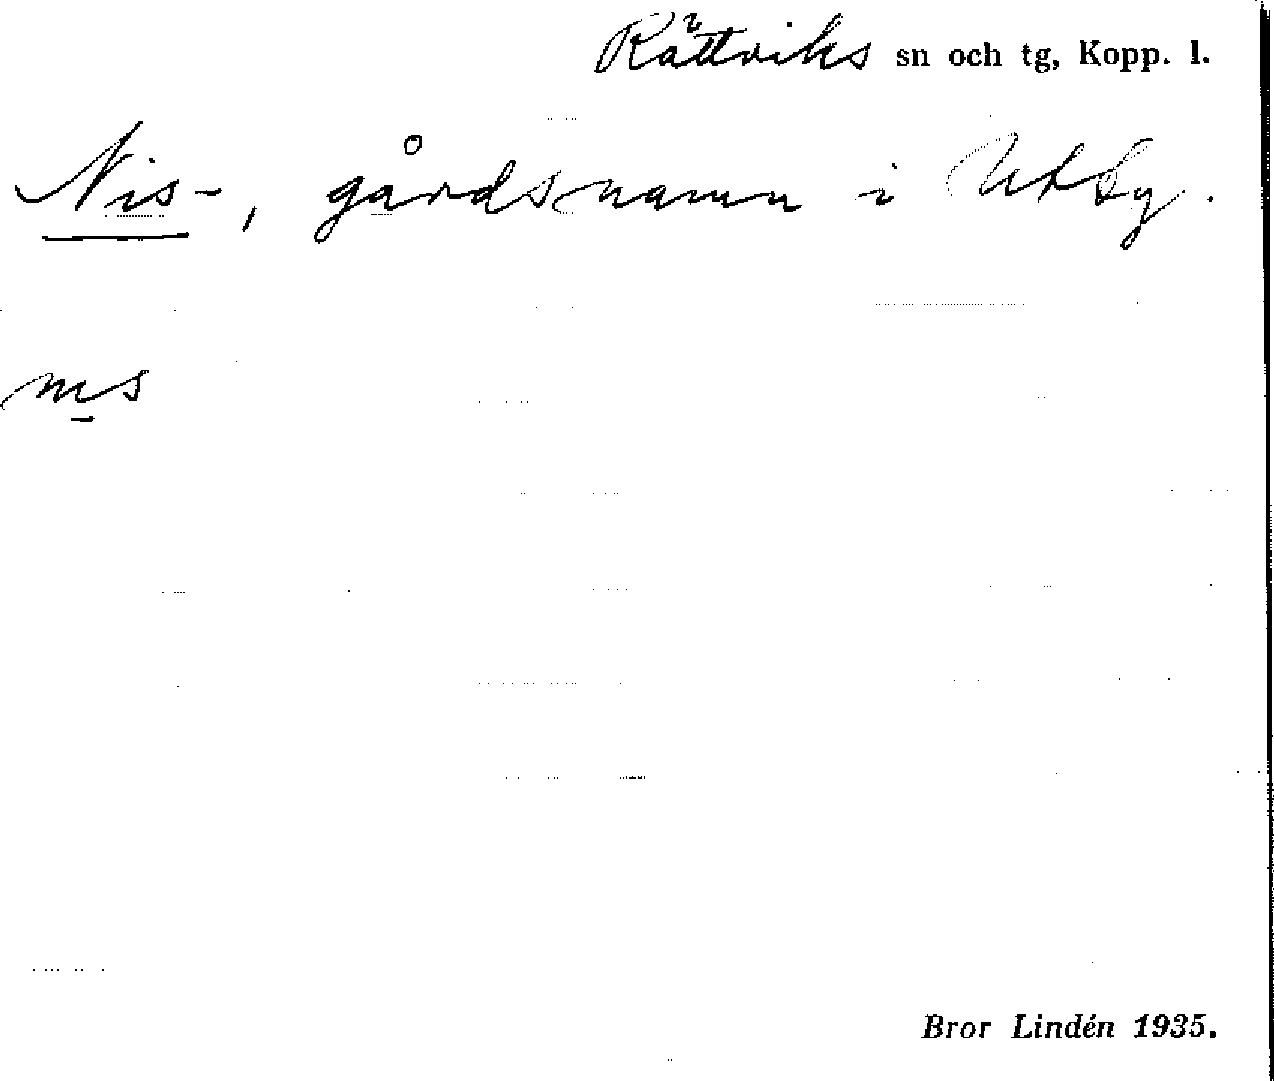 Rättviks sn och tg, Kopp. l.
Nis-, gårdsnamn i Utby.
Bror Lindén 1935.